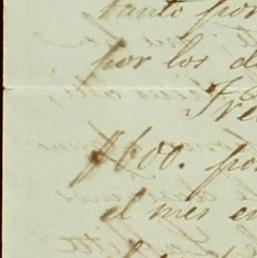 tanto por
por los d
Tre
$600. po
el mes e